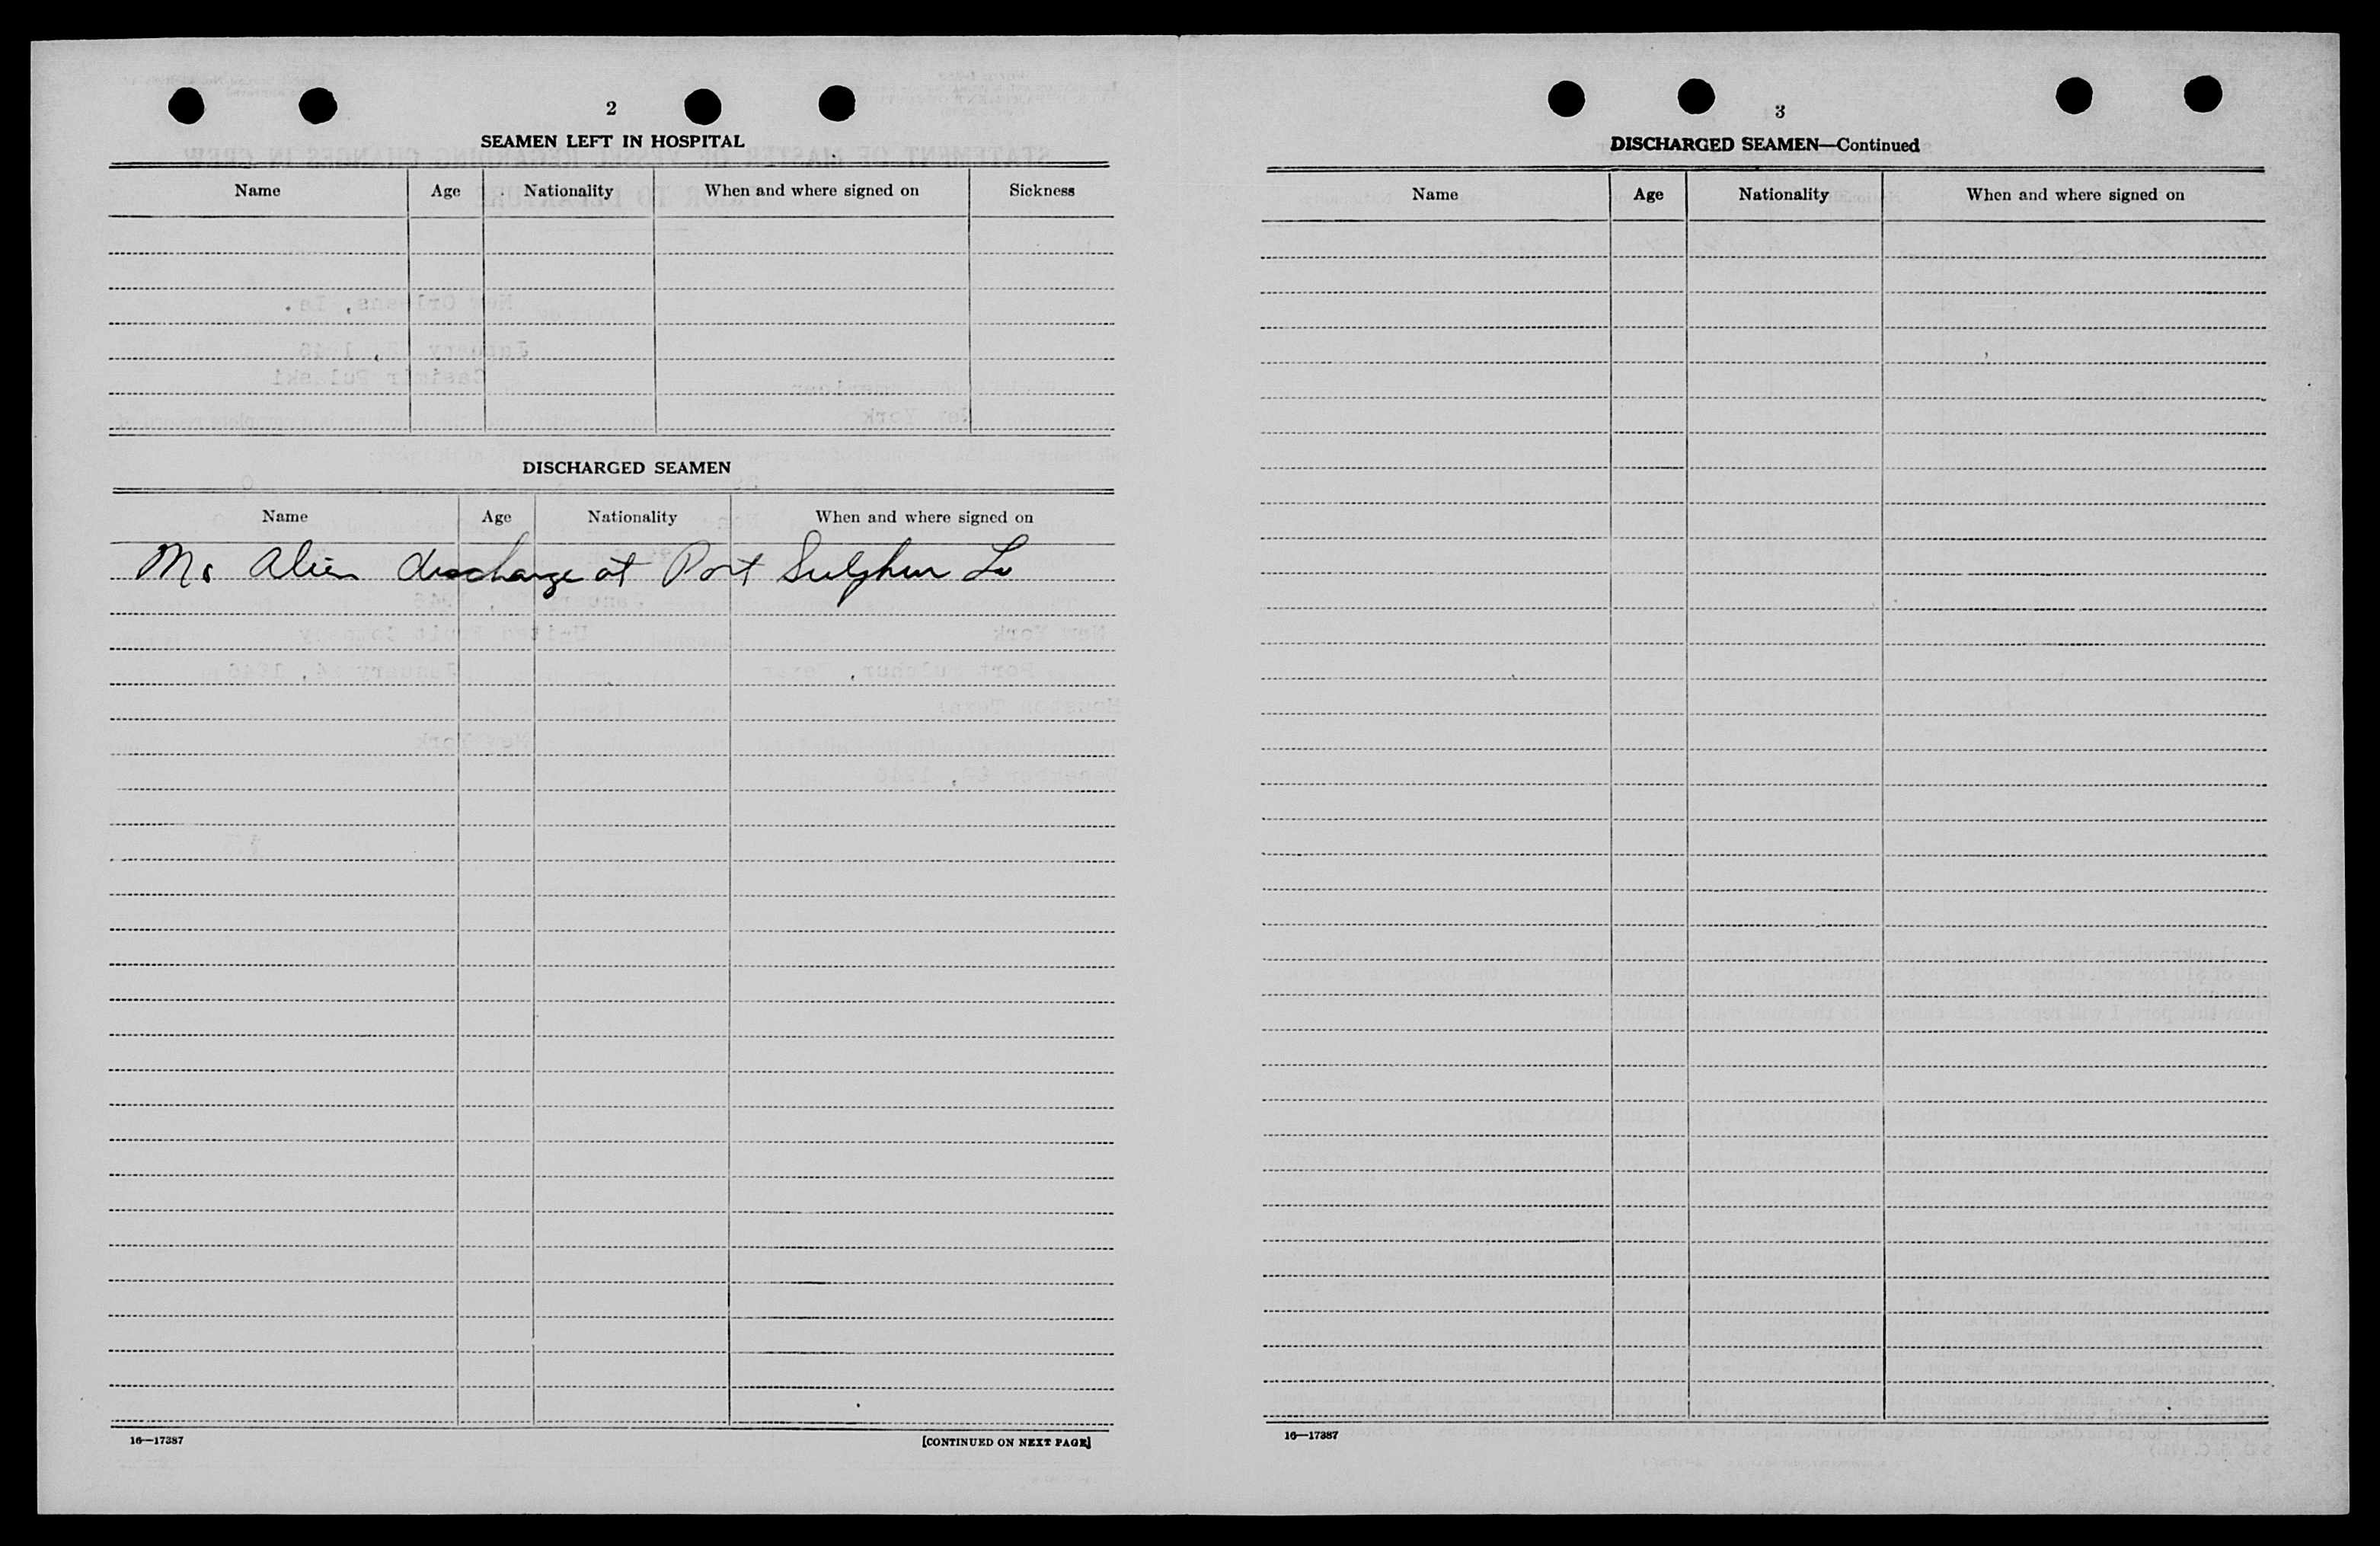 2
SEAMEN LEFT IN HOSPITAL
Name Age Nationality When and where signed on Sickness
DISCHARGED SEAMEN
Name Age Nationality When and where signed on
Alien discharge at Port Sulphur
16—17387 [CONTINUED ON NEXT PAGE]
3
DISCHARGED SEAMEN—Continued
Name Age Nationality When and where signed on
16—17387